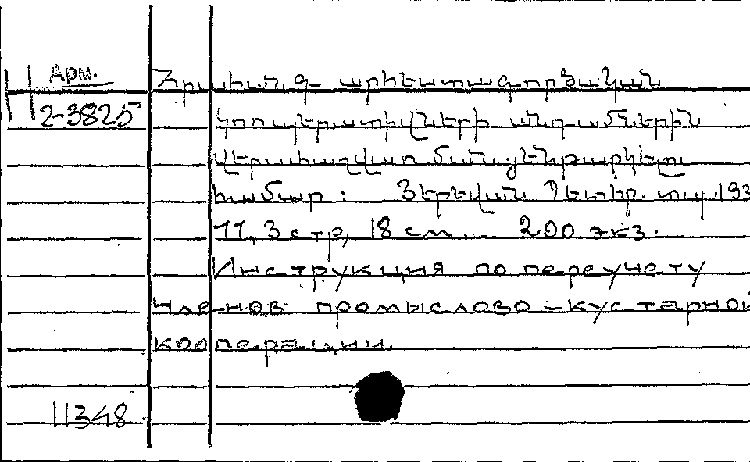 Арм.
H 2-3825
Հրահանգ արհեստագործական
կոոպերատիվների անդամների
վերահաշվառման ենթարկելու
համար: Յերեվան Պետհր. տպ. 193
11, 3 стр, 18 см. 200 экз.
Инструкция по переучету
членов промыслово-кустарной
кооперации.
11348